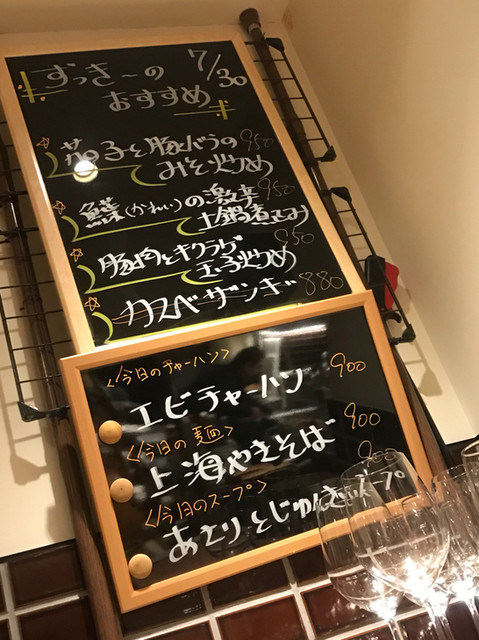 ずっきーの 7/30
おすすめ
茄子と豚バラの 950
みそ炒め
鰈(かれい)の激辛 950
土鍋煮込み
豚肉とキクラゲ 850
玉子炒め
カスベザンギ 880
<今日のチャーハン>
エビチャーハン 900
<今日の麺>
上海やきそば 900
<今日のスープ> 900
あさりとじゅんさいスープ